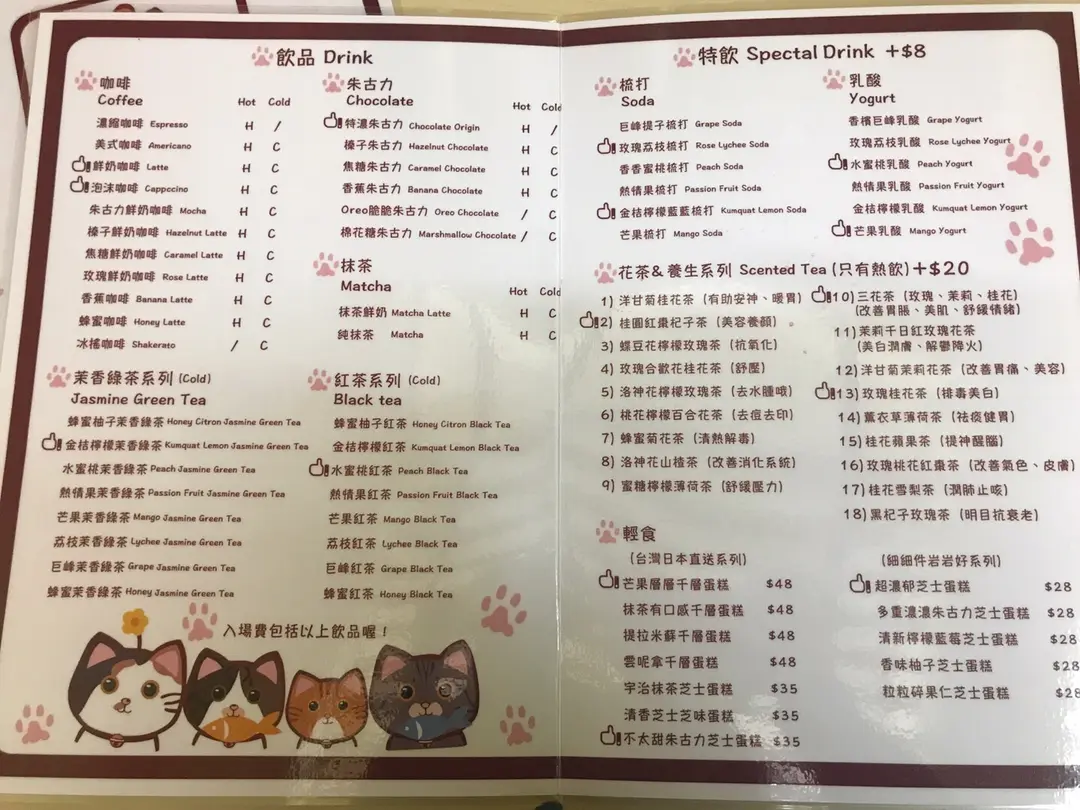 飲品 Drink
咖啡
Coffee
Hot Cold
濃縮咖啡 Espresso H /
美式咖啡 Americano H C
鮮奶咖啡 Latte H C
泡沫咖啡 Cappccino H C
朱古力鮮奶咖啡 Mocha H C
榛子鮮奶咖啡 Hazelnut Latte H C
焦糖鮮奶咖啡 Caramel Latte H C
玫瑰鮮奶咖啡 Rose Latte H C
香蕉咖啡 Banana Latte H C
蜂蜜咖啡 Honey Latte H C
冰搖咖啡 Shakerato / C
朱古力
Chocolate
Hot Cold
特濃朱古力 Chocolate Origin H /
榛子朱古力 Hazelnut Chocolate H C
焦糖朱古力 Caramel Chocolate H C
香蕉朱古力 Banana Chocolate H C
Oreo脆脆朱古力 Oreo Chocolate / C
棉花糖朱古力 Marshmallow Chocolate / C
抹茶
Matcha
Hot Cold
抹茶鮮奶 Matcha Latte H C
純抹茶 Matcha H C
茉香綠茶系列 (Cold)
Jasmine Green Tea
蜂蜜柚子茉香綠茶 Honey Citron Jasmine Green Tea
金桔檸檬茉香綠茶 Kumquat Lemon Jasmine Green Tea
水蜜桃茉香綠茶 Peach Jasmine Green Tea
熱情果茉香綠茶 Passion Fruit Jasmine Green Tea
芒果茉香綠茶 Mango Jasmine Green Tea
荔枝茉香綠茶 Lychee Jasmine Green Tea
巨峰茉香綠茶 Grape Jasmine Green Tea
蜂蜜茉香綠茶 Honey Jasmine Green Tea
紅茶系列 (Cold)
Black tea
蜂蜜柚子紅茶 Honey Citron Black Tea
金桔檸檬紅茶 Kumquat Lemon Black Tea
水蜜桃紅茶 Peach Black Tea
熱情果紅茶 Passion Fruit Black Tea
芒果紅茶 Mango Black Tea
荔枝紅茶 Lychee Black Tea
巨峰紅茶 Grape Black Tea
蜂蜜紅茶 Honey Black Tea
入場費包括以上飲品喔！
特飲 Spectal Drink +$8
梳打
Soda
巨峰提子梳打 Grape Soda
玫瑰荔枝梳打 Rose Lychee Soda
香香蜜桃梳打 Peach Soda
熱情果梳打 Passion Fruit Soda
金桔檸檬藍藍梳打 Kumquat Lemon Soda
芒果梳打 Mango Soda
乳酸
Yogurt
香檳巨峰乳酸 Grape Yogurt
玫瑰荔枝乳酸 Rose Lychee Yogurt
水蜜桃乳酸 Peach Yogurt
熱情果乳酸 Passion Fruit Yogurt
金桔檸檬乳酸 Kumquat Lemon Yogurt
芒果乳酸 Mango Yogurt
花茶&養生系列 Scented Tea (只有熱飲)+$20
1) 洋甘菊桂花茶（有助安神、暖胃）
2) 桂圓紅棗杞子茶（美容養顏）
3) 蝶豆花檸檬玫瑰茶（抗氧化）
4) 玫瑰合歡花桂花茶（舒壓）
5) 洛神花檸檬玫瑰茶（去水腫哦）
6) 桃花檸檬百合花茶（去痘去印）
7) 蜂蜜菊花茶（清熱解毒）
8) 洛神花山楂茶（改善消化系統）
9) 蜜糖檸檬薄荷茶（舒緩壓力）
10) 三花茶（玫瑰、茉莉、桂花）
(改善胃脹、美肌、舒緩情緒)
11) 茉莉千日紅玫瑰花茶
(美白潤膚、解鬱降火)
12) 洋甘菊茉莉花茶（改善胃痛、美容）
13) 玫瑰桂花茶（排毒美白）
14) 薰衣草薄荷茶（祛痰健胃）
15) 桂花蘋果茶（提神醒腦）
16) 玫瑰桃花紅棗茶（改善氣色、皮膚）
17) 桂花雪梨茶（潤肺止咳）
18) 黑杞子玫瑰茶（明目抗衰老）
輕食
(台灣日本直送系列)
芒果層層千層蛋糕 $48
抹茶有口感千層蛋糕 $48
提拉米蘇千層蛋糕 $48
雲呢拿千層蛋糕 $48
宇治抹茶芝士蛋糕 $35
清香芝士芝味蛋糕 $35
不太甜朱古力芝士蛋糕 $35
(細細件岩岩好系列)
超濃郁芝士蛋糕 $28
多重濃濃朱古力芝士蛋糕 $28
清新檸檬藍莓芝士蛋糕 $28
香味柚子芝士蛋糕 $28
粒粒碎果仁芝士蛋糕 $28